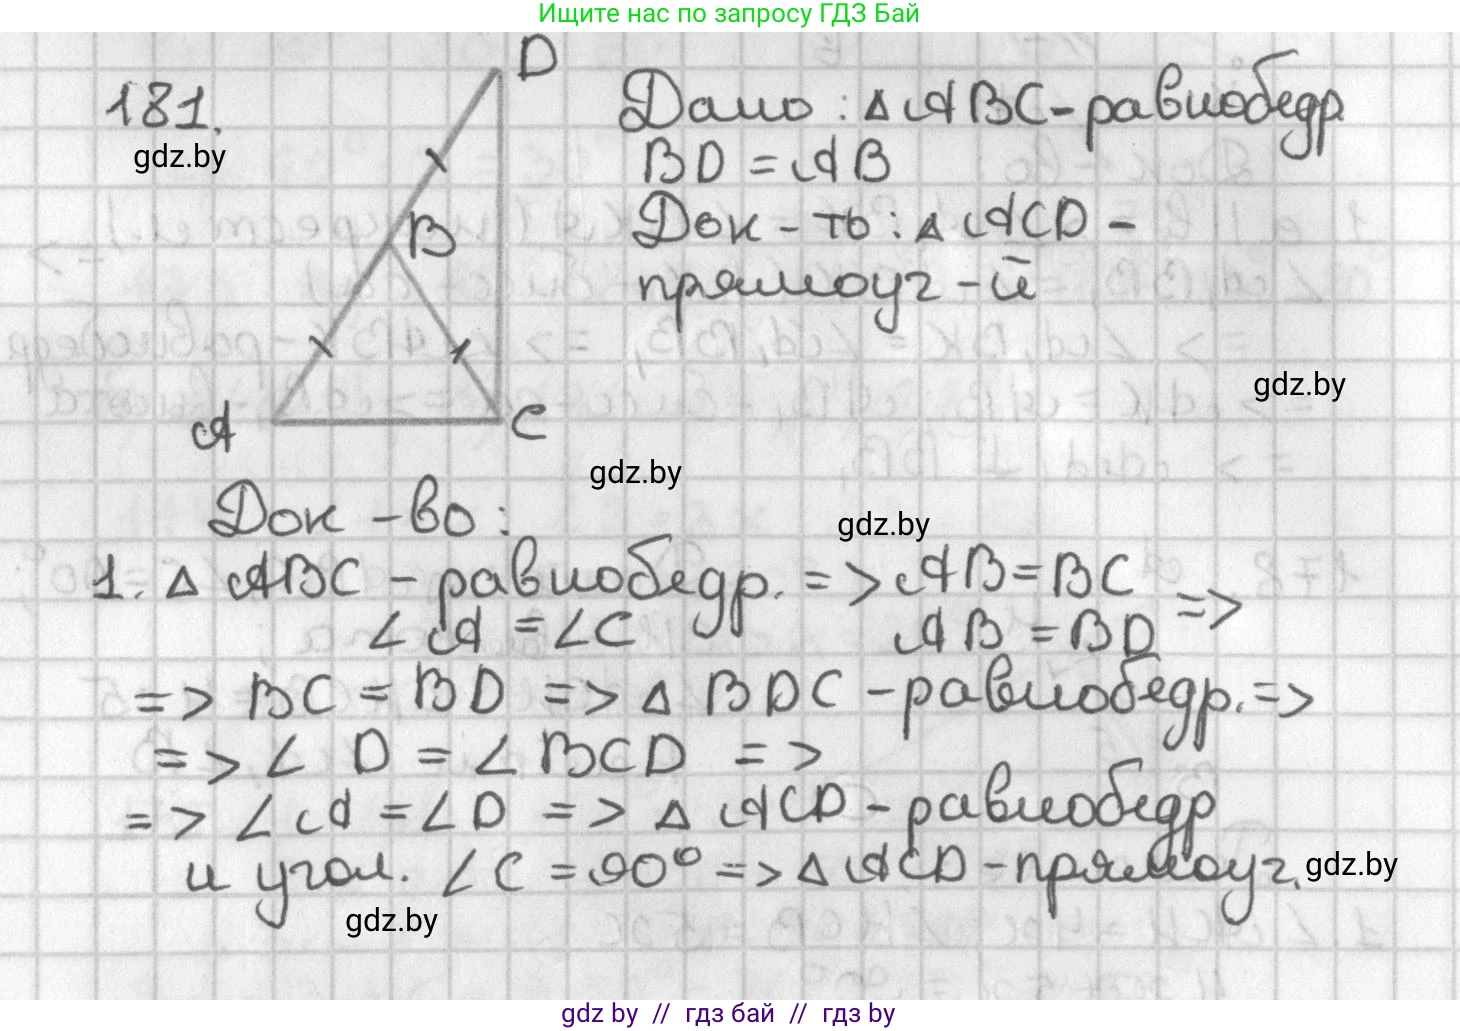 Ищите нас по запросу ГДЗ Бай
181.
gdz.by
D
B
A
C
Дано: △ ABC - равнобедр.
BD = AB
Док - ть: △ ACD -
прямоуг - й
gdz.by
gdz.by
Док - во:
gdz.by
1. △ ABC - равнобедр. => AB = BC
∠A = ∠C AB = BD =>
=> BC = BD => △ BDC - равнобедр. =>
=> ∠ D = ∠ BCD =>
=> ∠A = ∠D => △ ACD - равнобедр
и угол. ∠C = 90° => △ ACD - прямоуг.
gdz.by
gdz.by
gdz by // гдз бай // гдз by